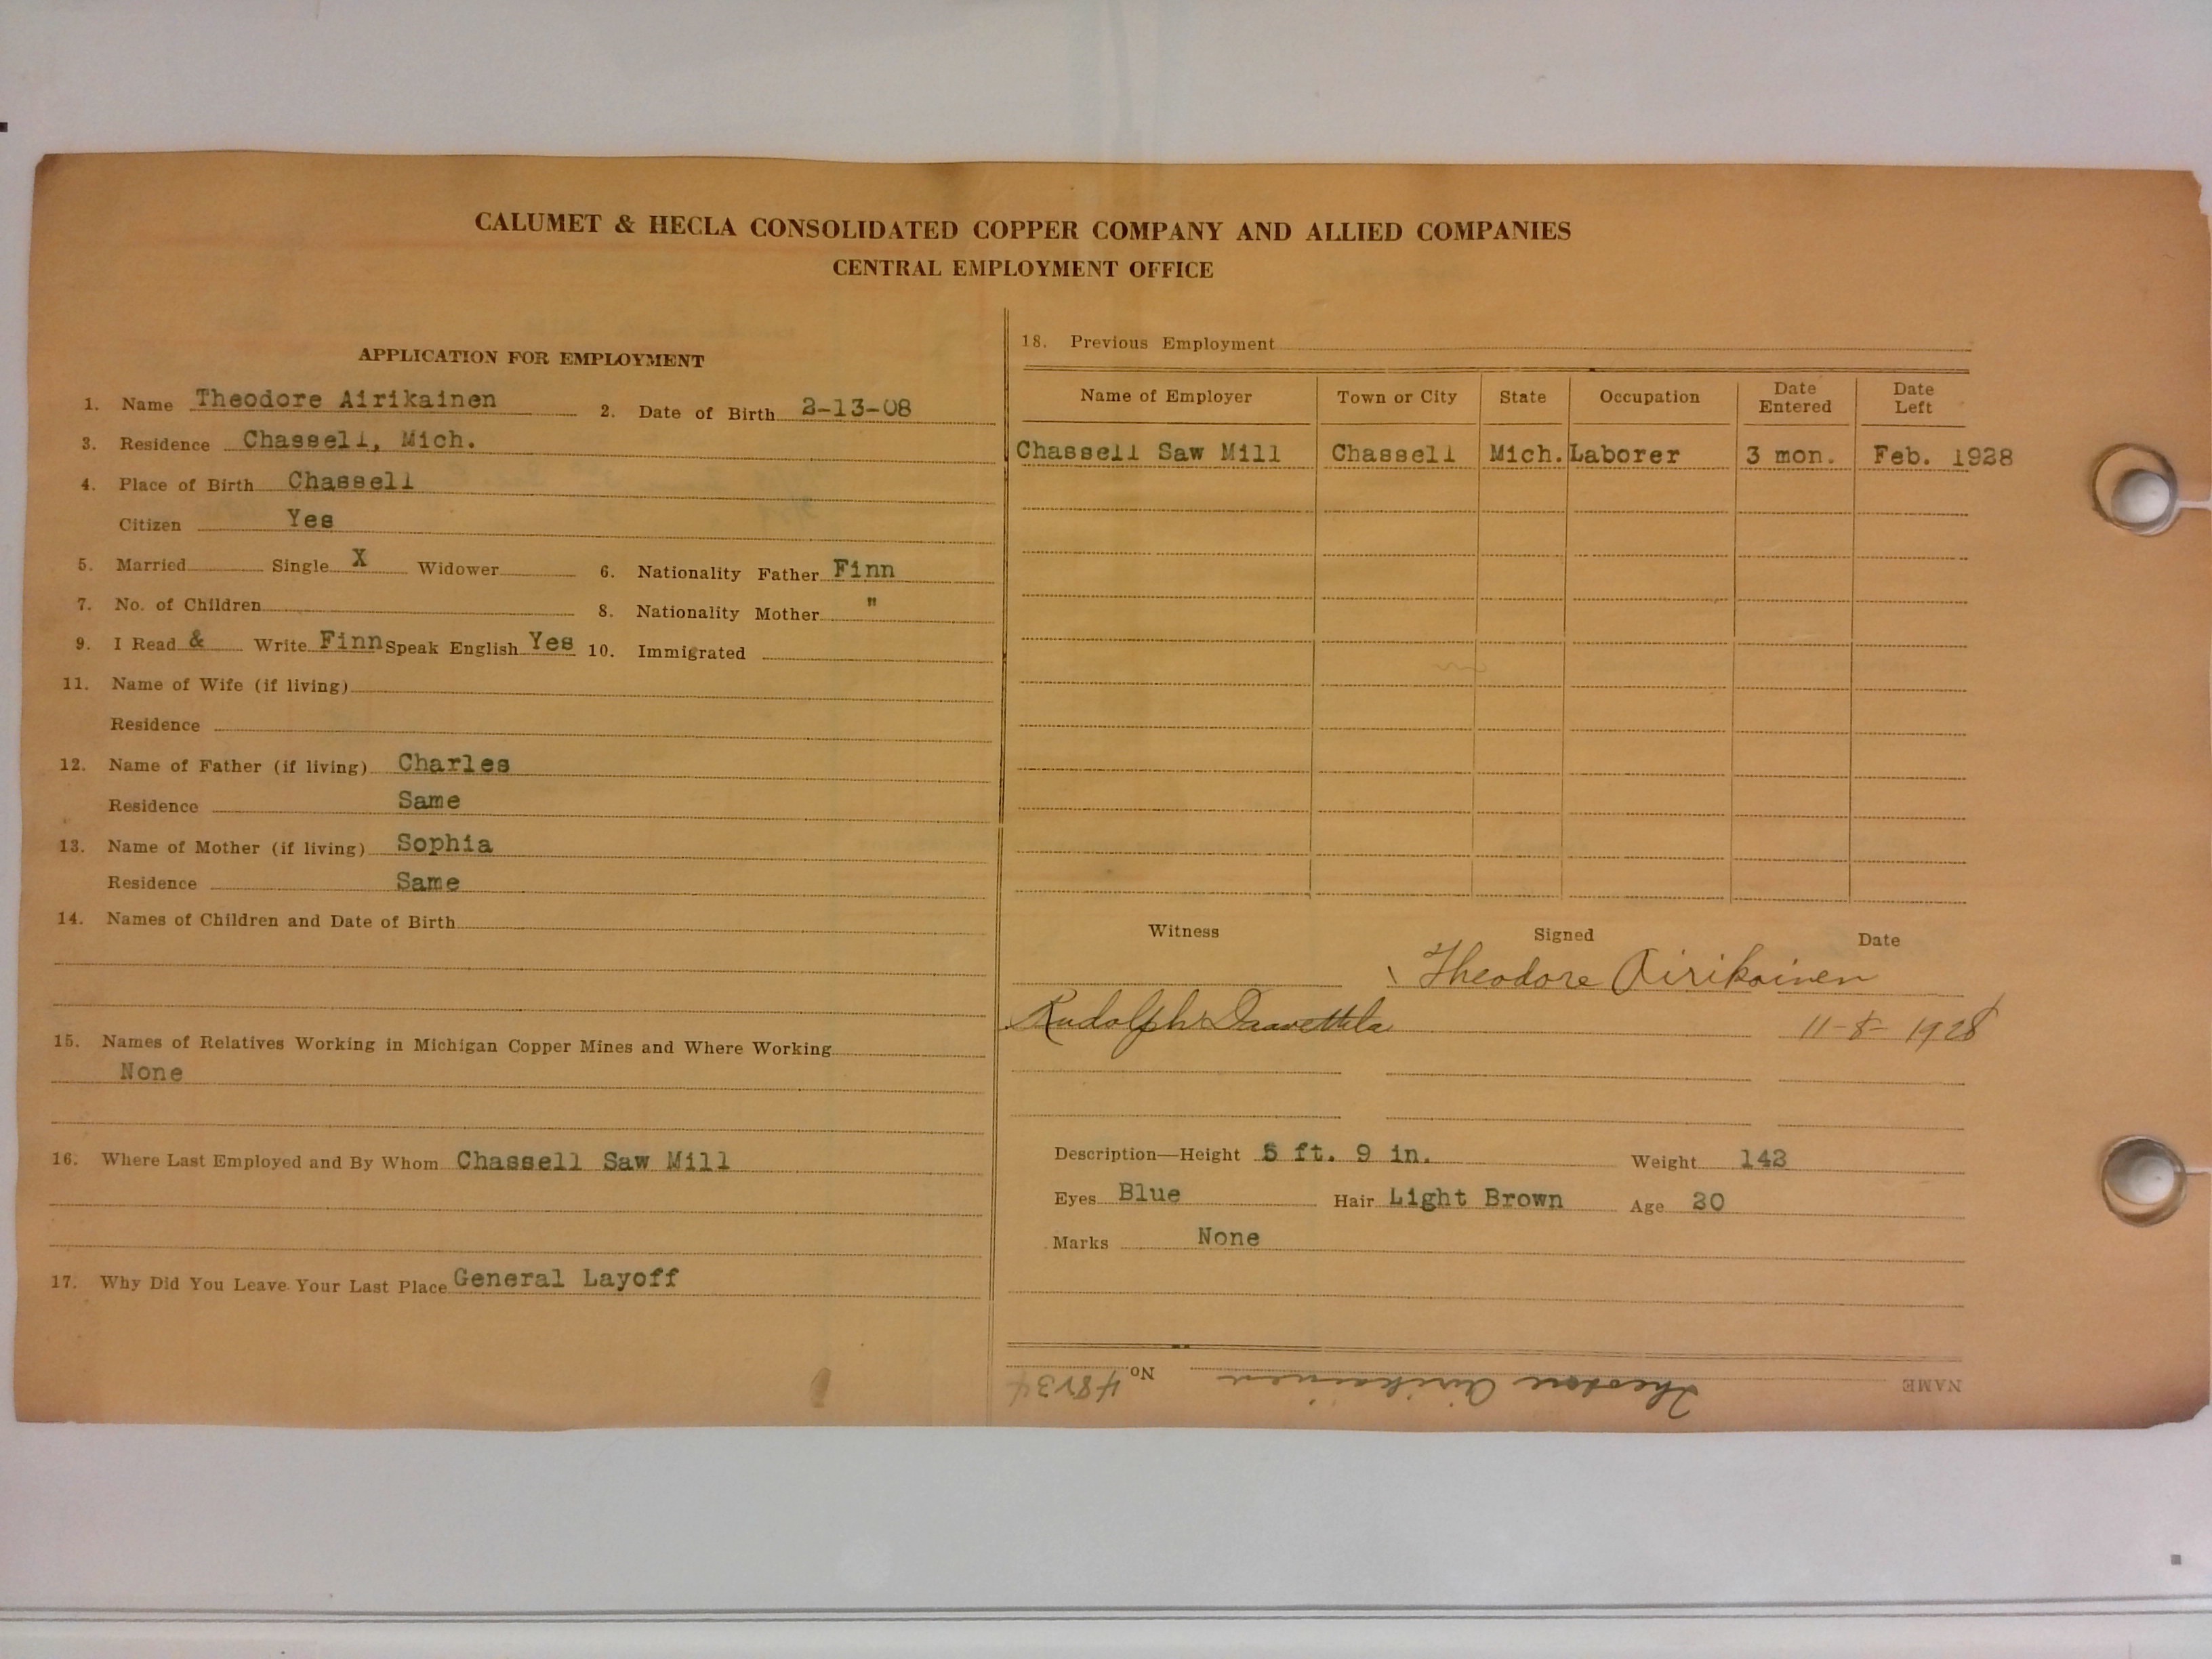 CALUMET & HECLA CONSOLIDATED COPPER COMPANY AND ALLIED COMPANIES
CENTRAL EMPLOYMENT OFFICE
APPLICATION FOR EMPLOYMENT
1. Name Theodore Airikainen 2. Date of Birth 2-13-08
3. Residence Chassell, Mich.
4. Place of Birth Chassell
Citizen Yes
5. Married Single X Widower 6. Nationality Father Finn
7. No. of Children 8. Nationality Mother "
9. I Read & Write Finn Speak English Yes 10. Immigrated
11. Name of Wife (if living)
Residence
12. Name of Father (if living) Charles
Residence Same
13. Name of Mother (if living) Sophia
Residence Same
14. Names of Children and Date of Birth
15. Names of Relatives Working in Michigan Copper Mines and Where Working
None
16. Where Last Employed and By Whom Chassell Saw Mill
17. Why Did You Leave Your Last Place General Layoff
18. Previous Employment
Name of Employer Town or City State Occupation Date Entered Date Left
Chassell Saw Mill Chassell Mich. Laborer 3 mon. Feb. 1928
Witness Signed Date
Theodore Airikainen
Rudolph 11-8-1928
Description—Height 5 ft. 9 in. Weight 142
Eyes Blue Hair Light Brown Age 20
Marks None
NAME Theodore Airikainen No.